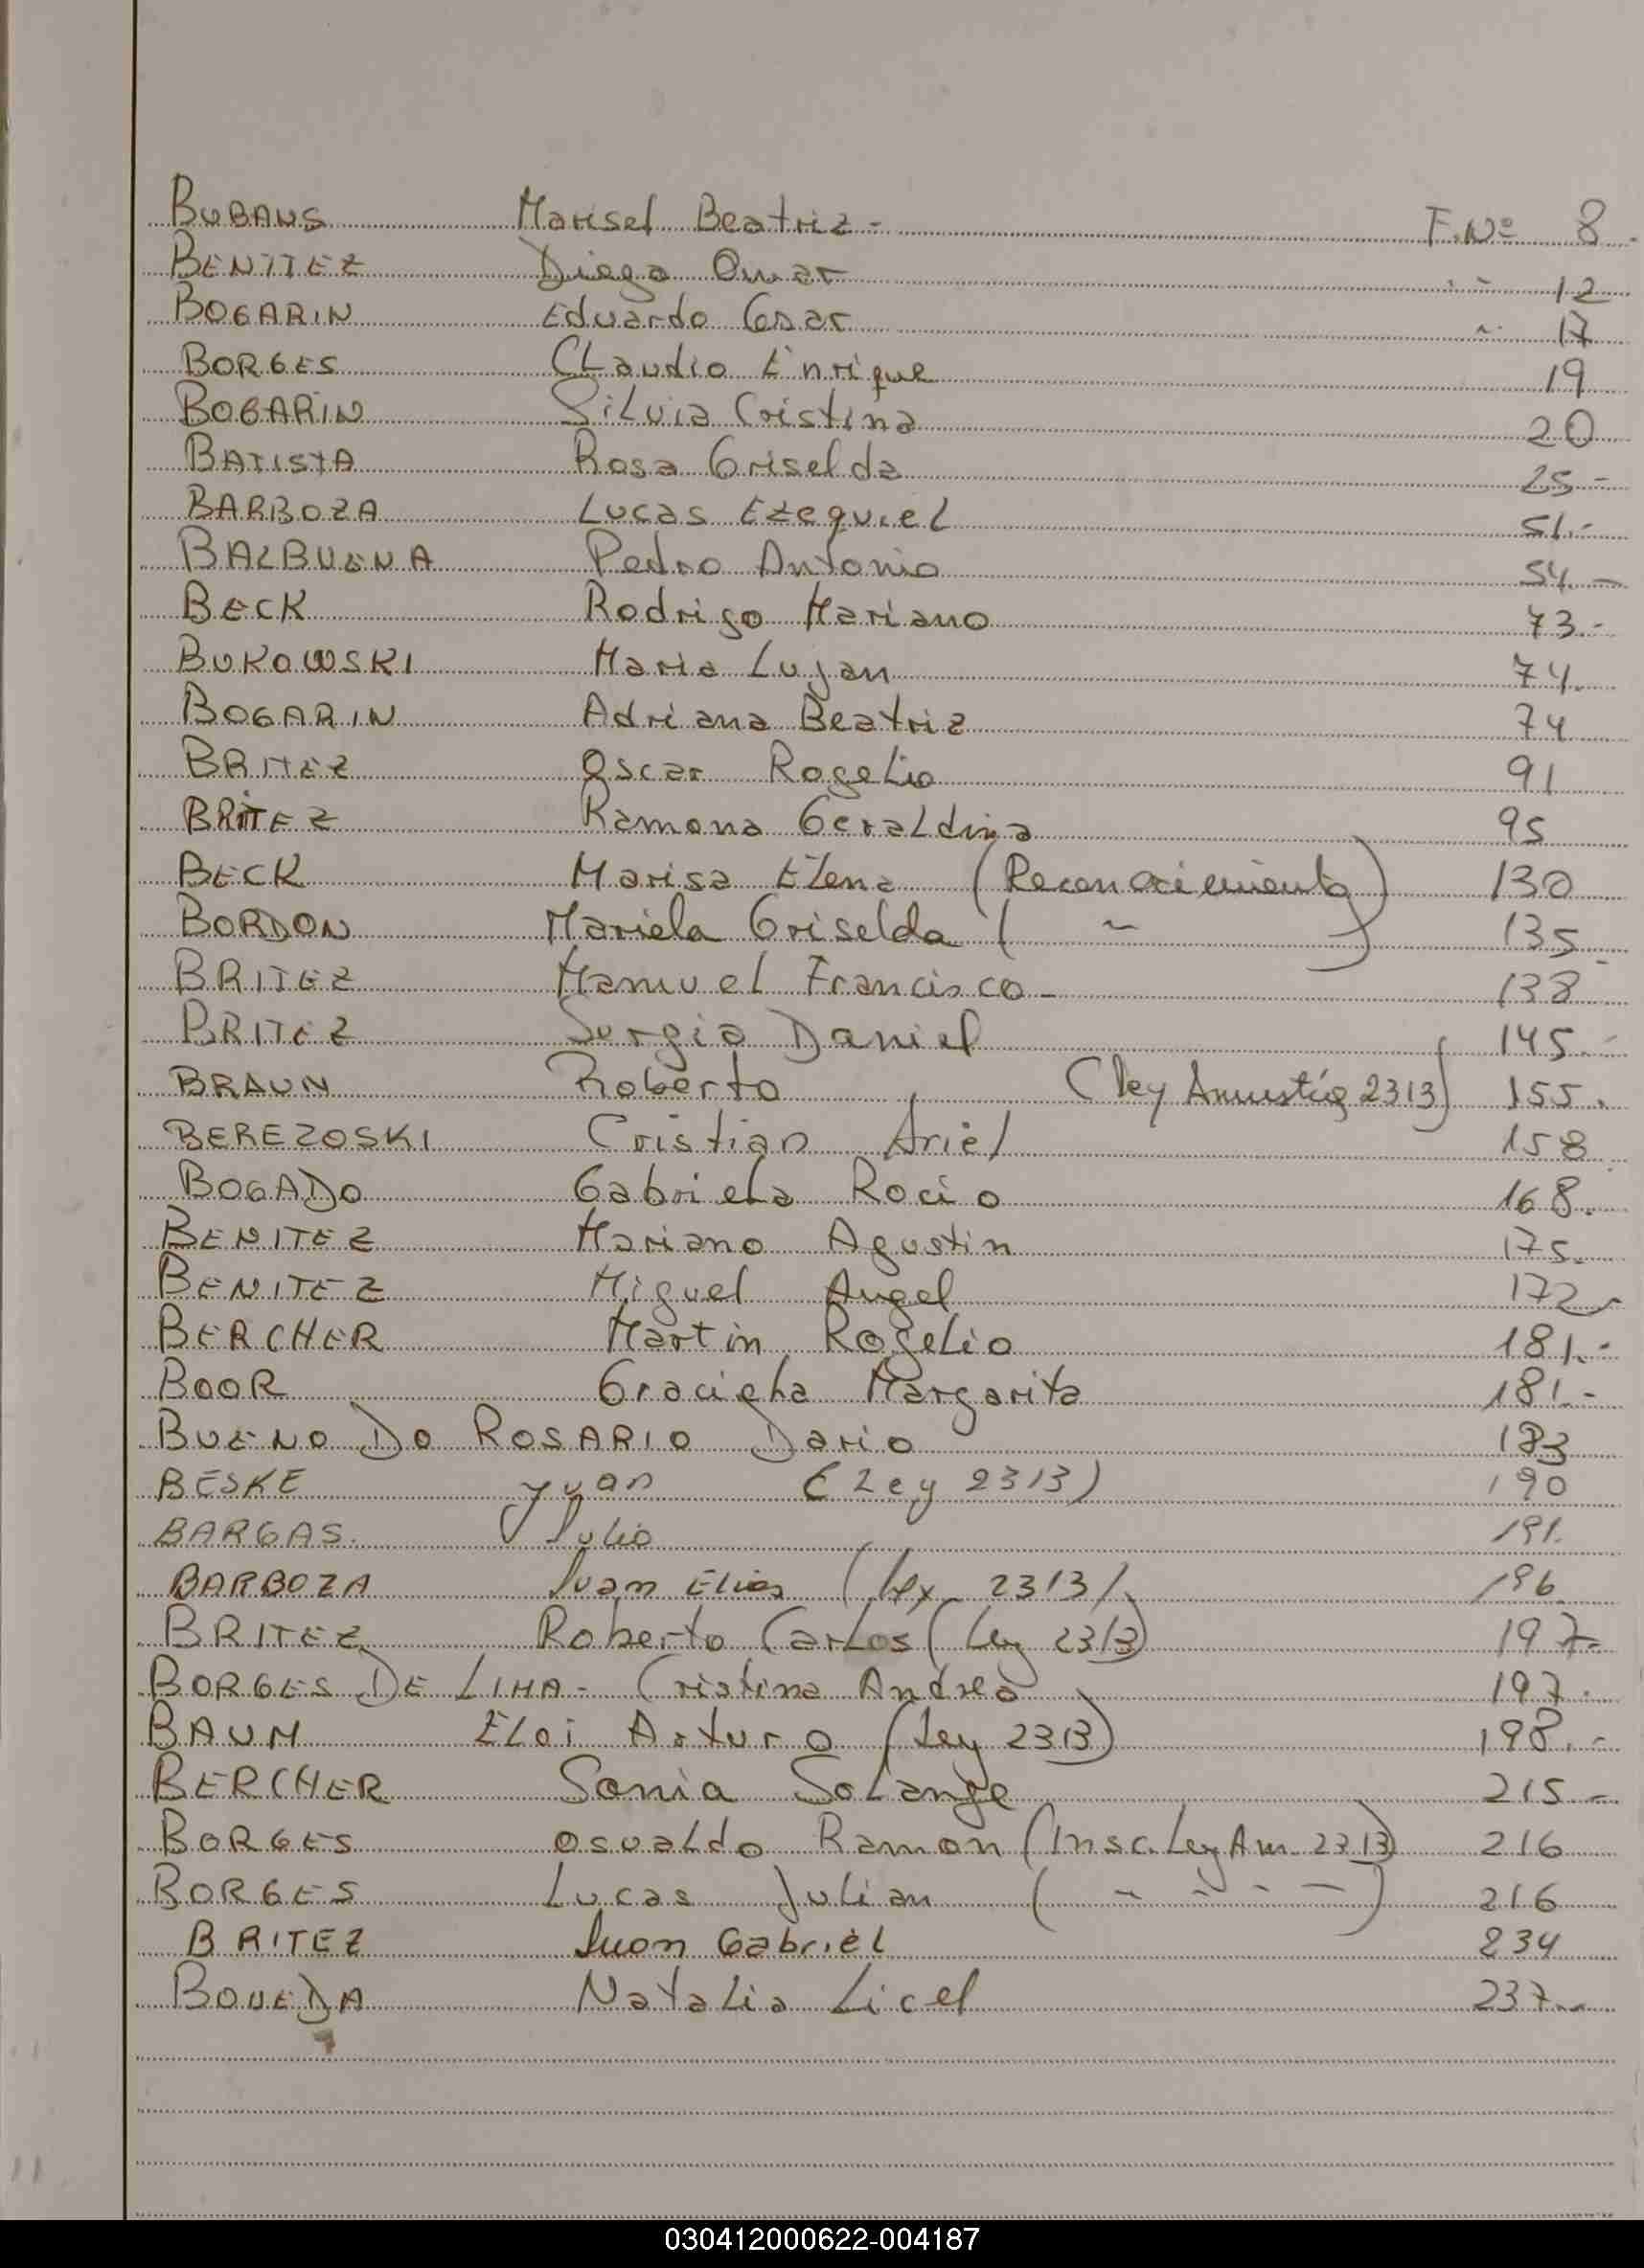 BUBANS Marisel Beatriz - F. Nº 8.
BENITEZ Diego Omar " " 12
BOGARIN Eduardo Cesar " 17
BORGES Claudio Enrique 19
BOGARIN Silvia Cristina 20
BATISTA Rosa Griselda 25 -
BARBOZA Lucas Ezequiel 51.-
BALBUENA Pedro Antonio 54.-
BECK Rodrigo Mariano 73.-
BUKOWSKI Maria Lujan 74.
BOGARIN Adriana Beatriz 74
BRITEZ Oscar Rogelio 91
BRITEZ Ramona Geraldina 95
BECK Marisa Elena (Reconocimiento) 130
BORDON Mariela Griselda ( " ) 135
BRITEZ Manuel Francisco - 138
BRITEZ Sergio Daniel 145.-
BRAUN Roberto (Ley Amnistía 2313) 155.
BEREZOSKI Cristian Ariel 158
BOGADO Gabriela Rocio 168.
BENITEZ Mariano Agustin 175.
BENITEZ Miguel Angel 172-
BERCHER Martin Rogelio 181.-
BOOR Graciela Margarita 181.-
BUENO DO ROSARIO Dario 183
BESKE Juan (Ley 2313) 190
BARGAS. Julio 191.
BARBOZA Juan Elias (Ley 2313) 196
BRITEZ Roberto Carlos (Ley 2313) 197.-
BORGES DE LIMA - Cristina Andrea 197.
BAUM Eloi Arturo (Ley 2313) 198.-
BERCHER Sonia Solange 215 -
BORGES Osvaldo Ramon (Insc. Ley Am. 2313) 216
BORGES Lucas Julian ( " " " " ) 216
BRITEZ Juan Gabriel 234
BOVEDA Natalia Licel 237.-
030412000622-004187